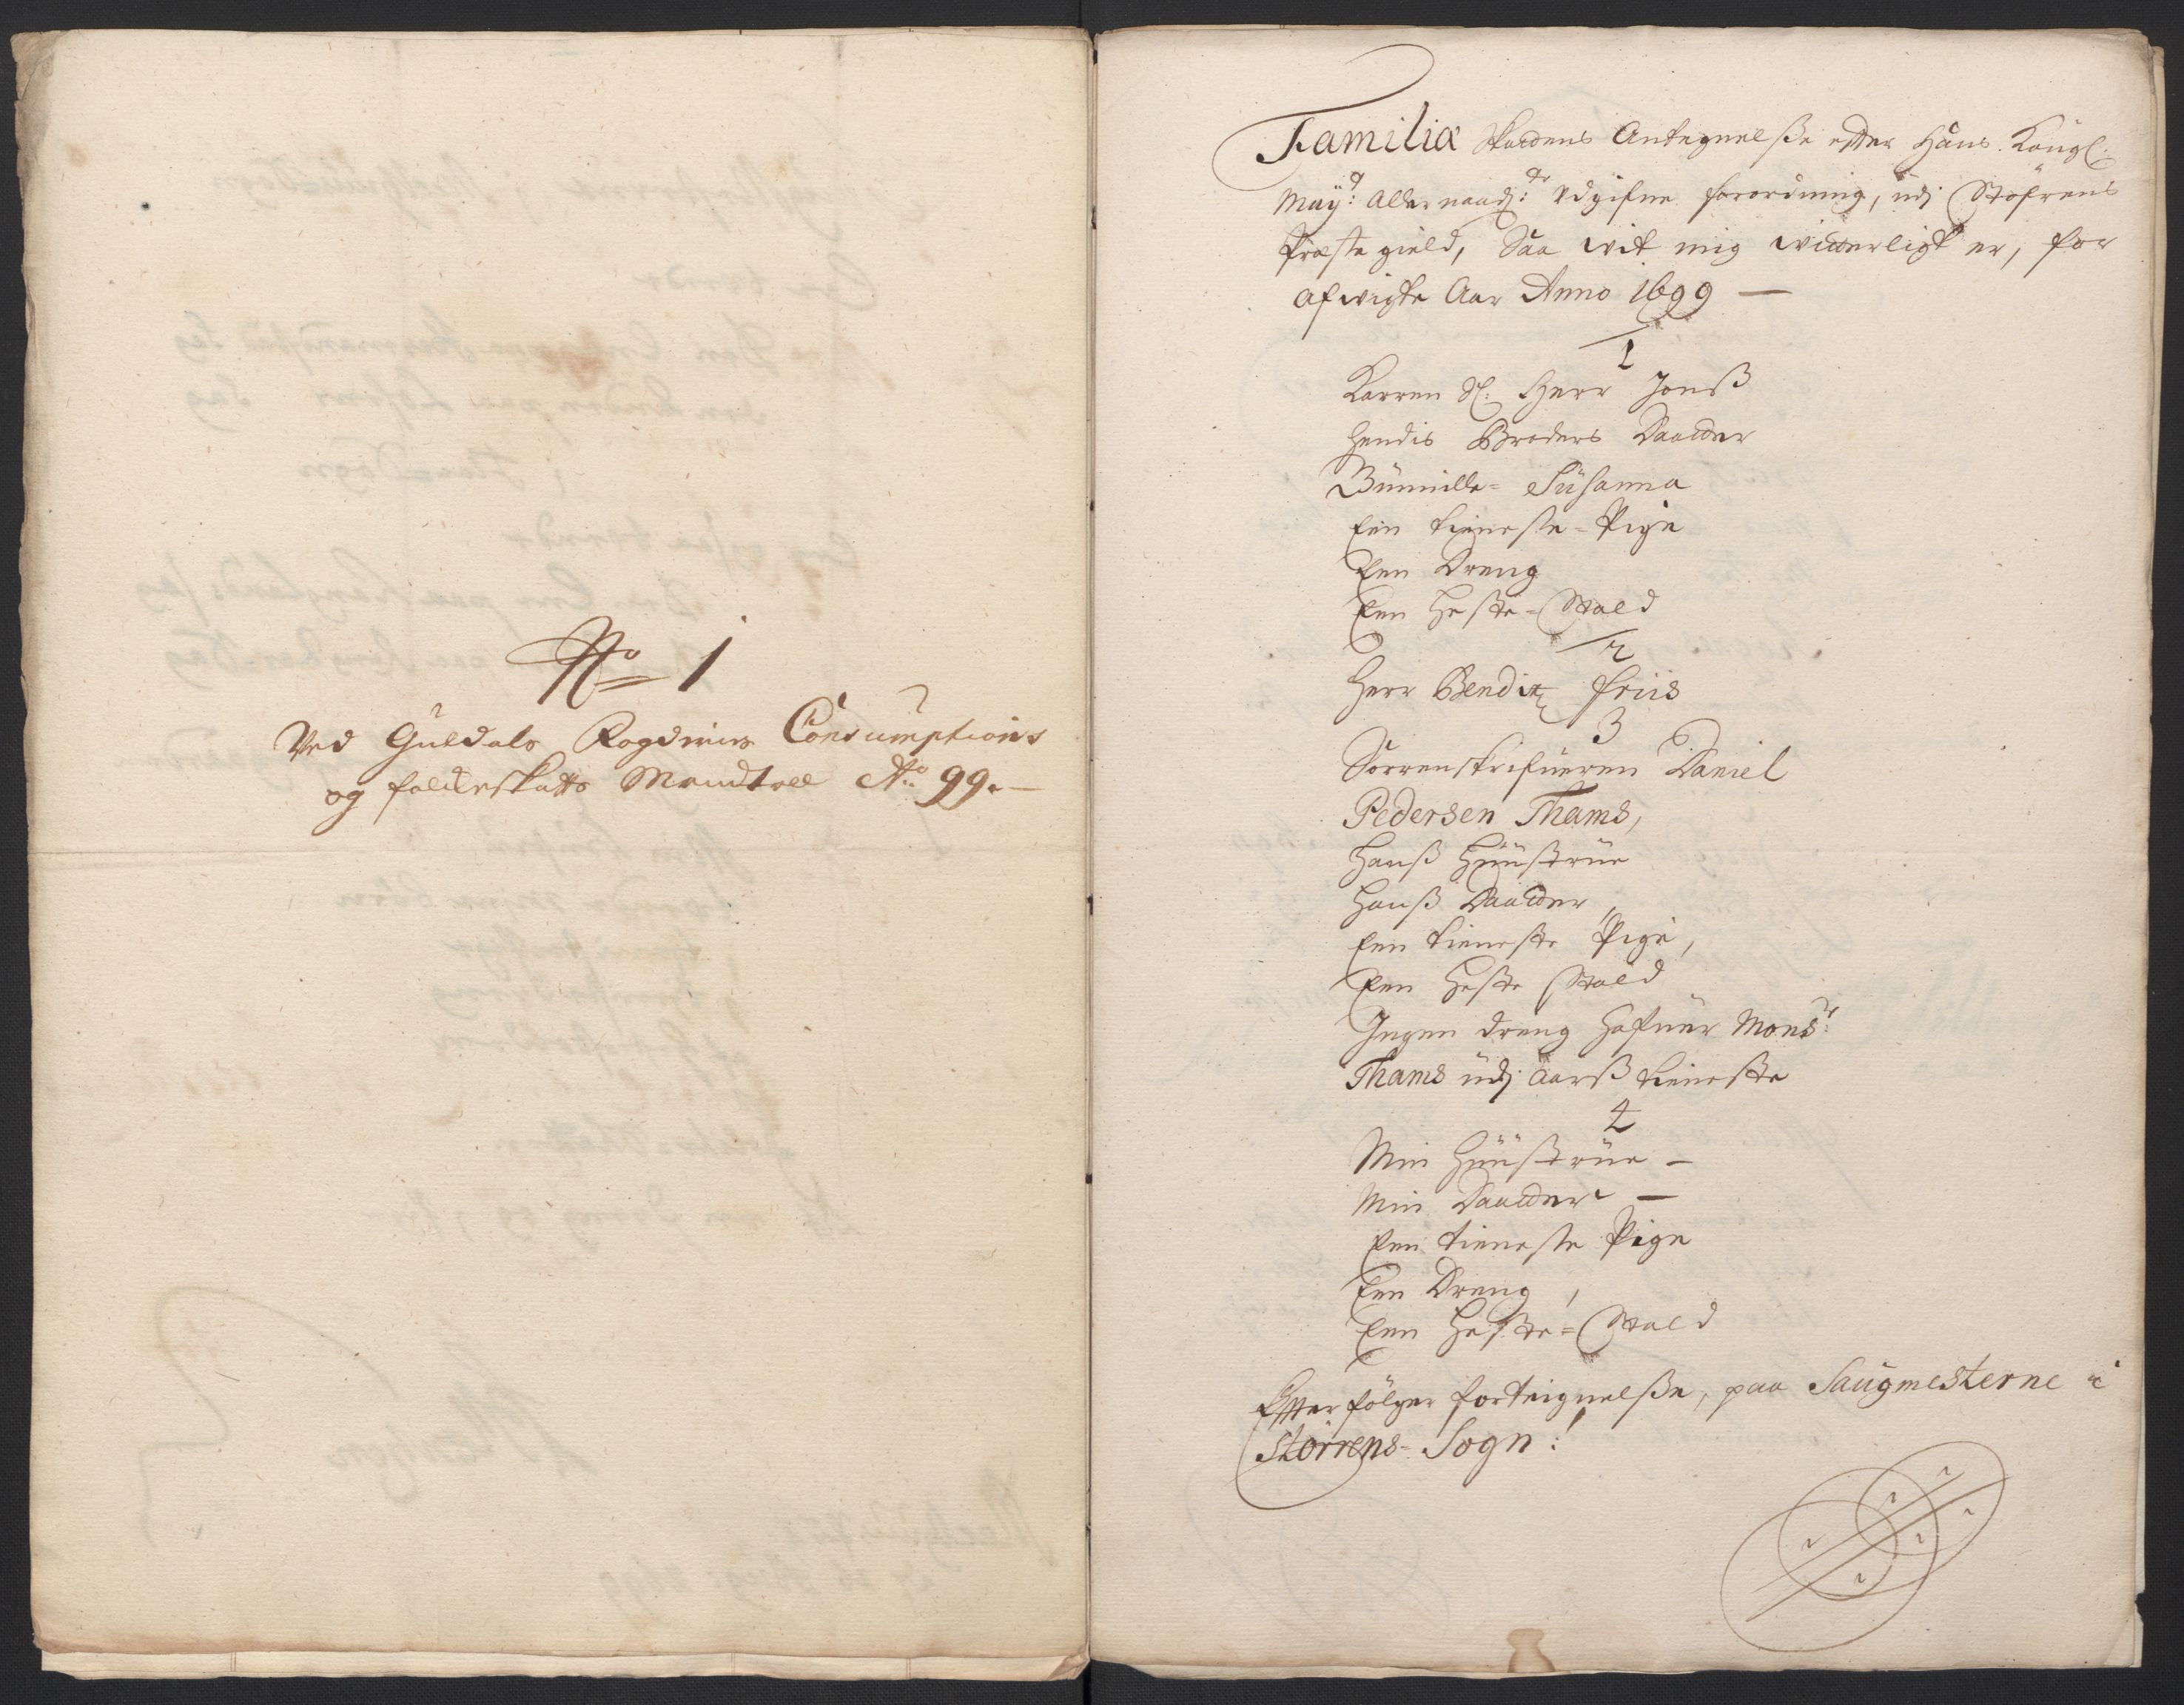 No 1
Ved Guldals Fogderies Consumptions
og folcke skatts Mandtall Ao: 99.
Familiæ Skattens Antegnelße efter Hans Kongl:
Mayts: Allernaadigste: Udgifne forordning, udj Størrens
Præste gield, Saa vit mig vitterligt er, for
afvigte Aar Anno 1699 —
1
Karren Sl: Herr Jenß
hendis Broders Daatter
Susanna
Een tieneste-Pige
Een Dreng
Een Heste-Stald
2
Herr Benditz Friis
3
Sorrenskrifueren Daniel
Pedersen Thams,
Hanß Huustrue
Hanß Daatter
Een tieneste Pige,
Een Heste Stald
Ingen dreng hafuer Monsr:
Thams udj aarß tieneste
4
Min Huustrue —
Min Daatter —
Een tieneste Pige
Een Dreng,
Een Heste-Stald
Efterfølger forteignelße, paa Saugmesterne i
Størrens-Sogn: